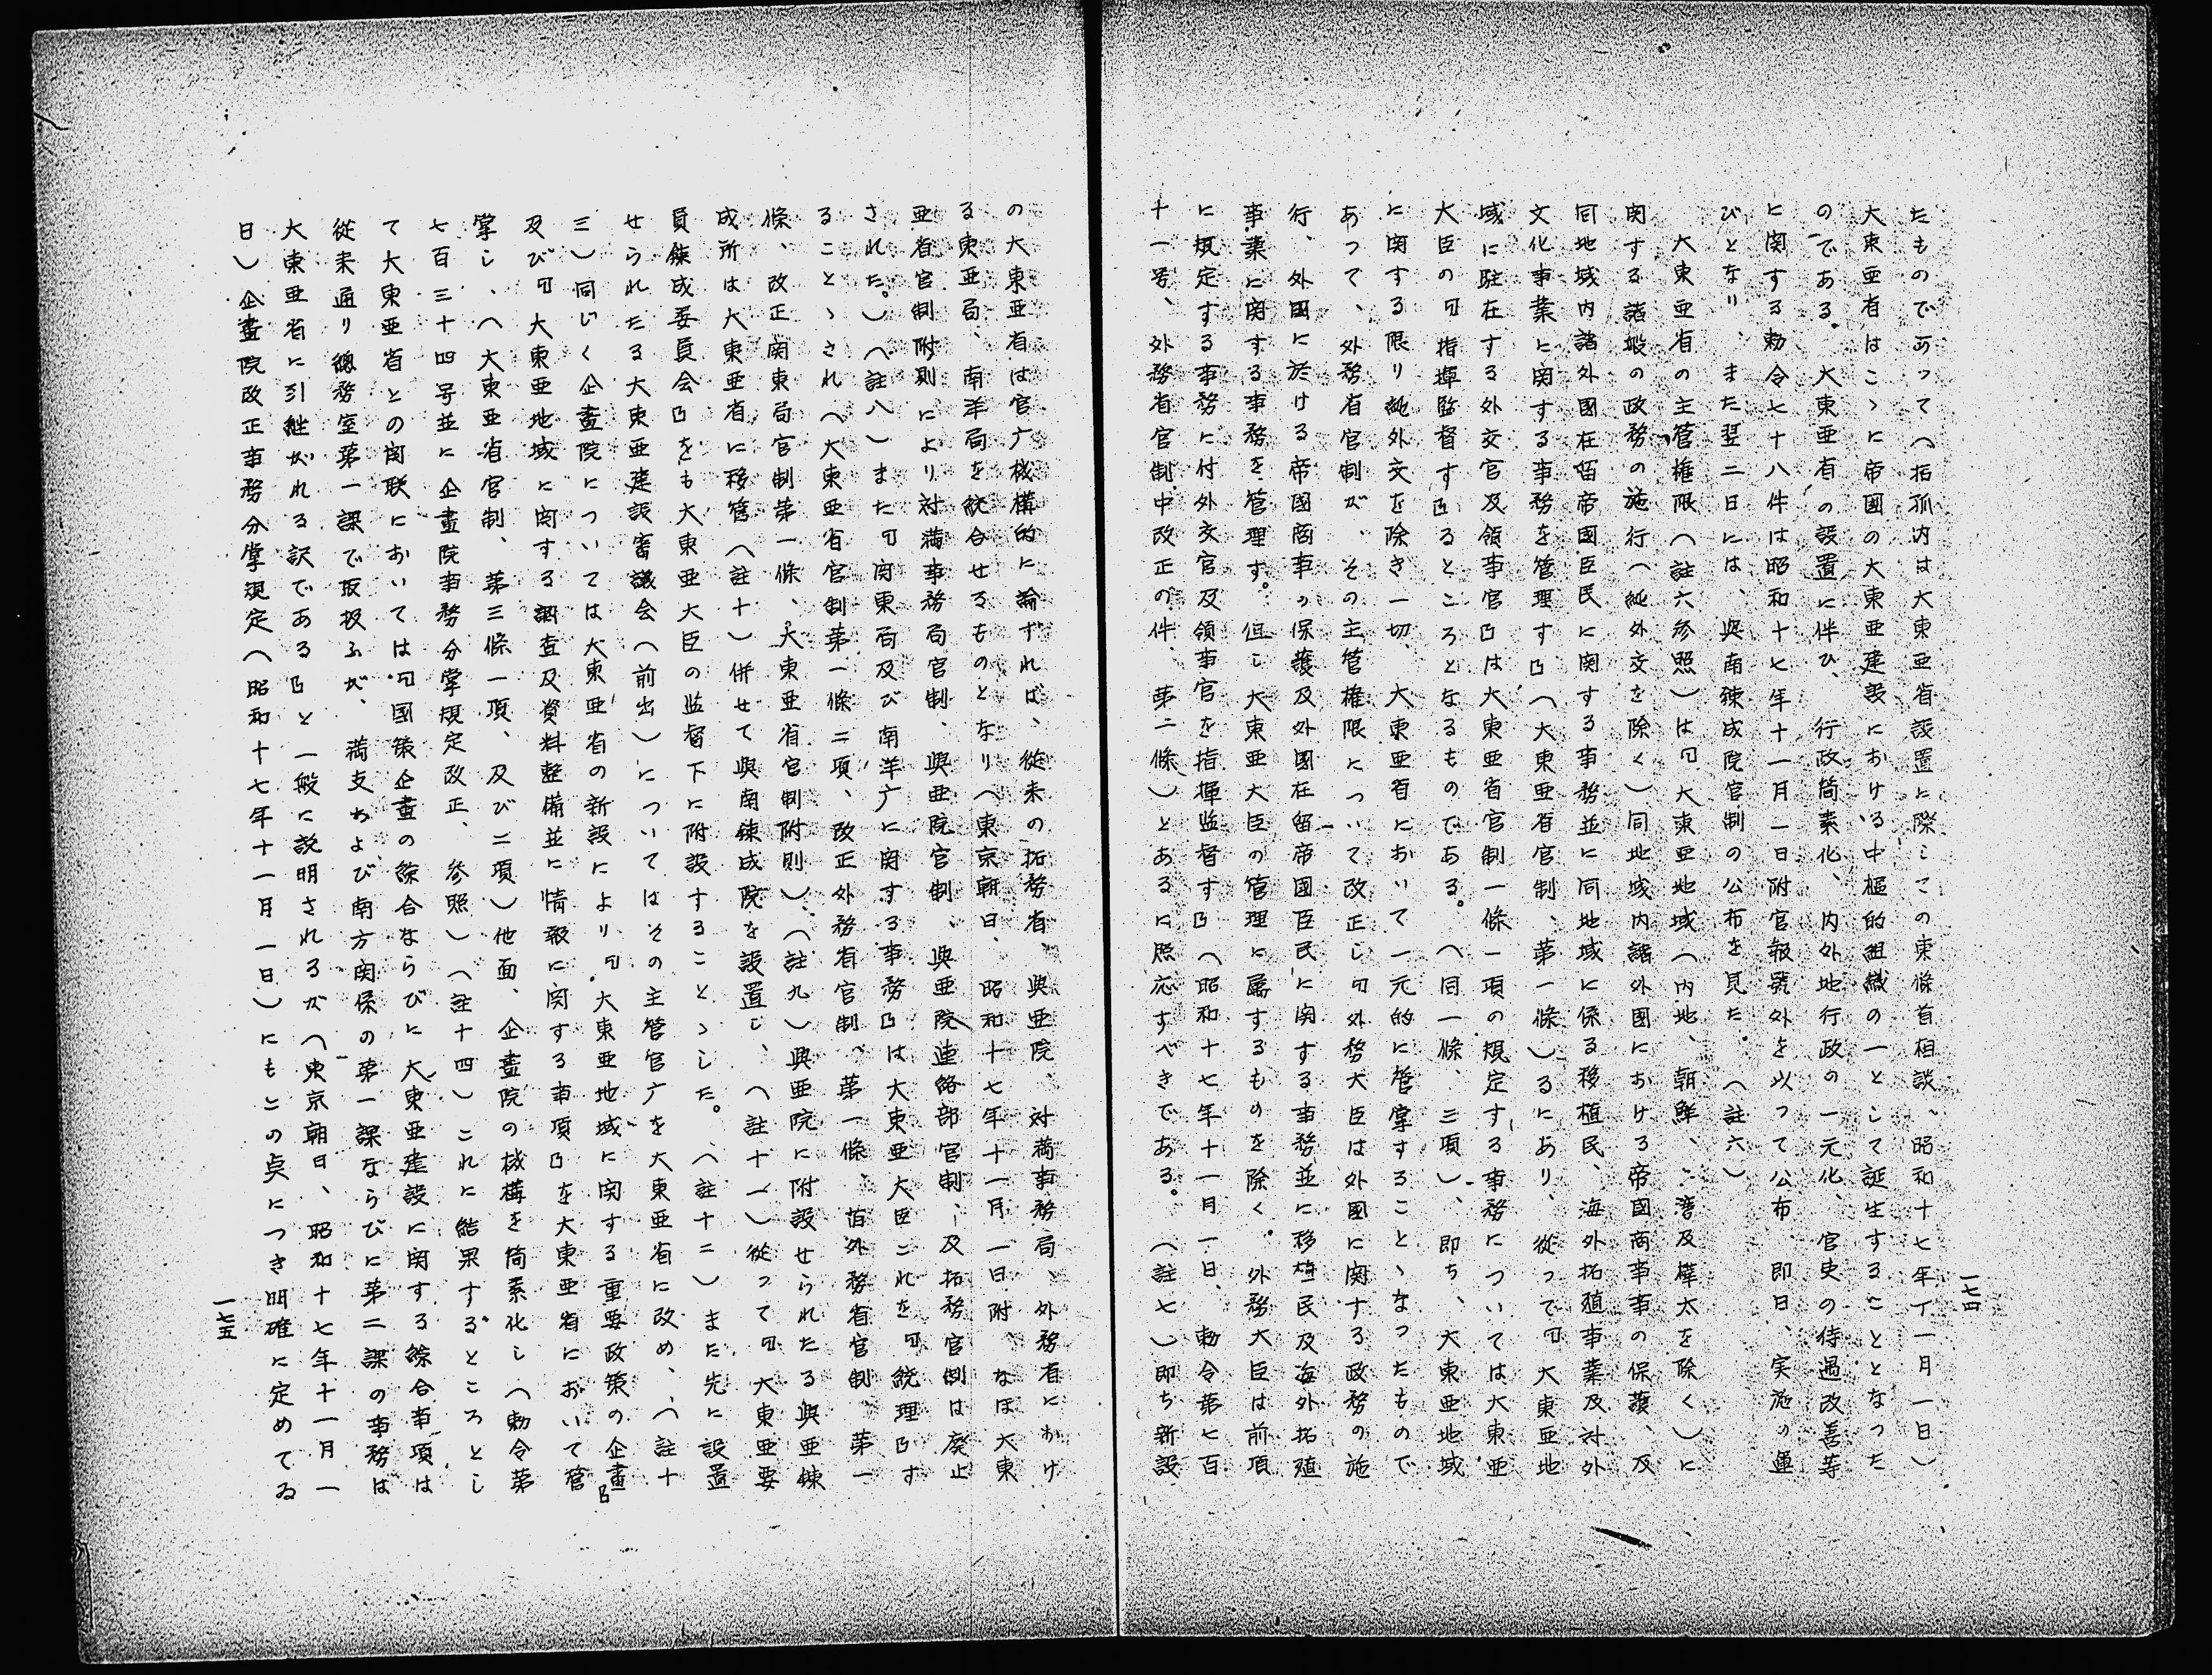 たものであって（括弧内は大東亜省設置に際しての東條首相談、昭和十七年十一月一日）
大東亜省はこゝに帝國の大東亜建設における中樞的組織の一として誕生することとなつた
のである。大東亜省の設置に伴ひ、行政簡素化、内外地行政の一元化、官吏の待遇改善等
に関する勅令七十八件は昭和十七年十一月一日附官報號外を以って公布、即日、実施の運
びとなり、また翌二日には、興南錬成院官制の公布を見た。（註六）
大東亜省の主管権限（註六参照）は『大東亜地域（内地、朝鮮、台湾及樺太を除く）に
関する諸般の政務の施行（純外交を除く）同地域内諸外國における帝國商事の保護、及
同地域内諸外國在留帝國臣民に関する事務並に同地域に係る移植民、海外拓殖事業及対外
文化事業に関する事務を管理す』（大東亜省官制、第一條）るにあり、從って『大東亜地
域に駐在する外交官及領事官』は大東亜省官制一條一項の規定する事務については大東亜
大臣の『指揮監督す』るところとなるものである。（同一條、三項）、即ち、大東亜地域
に関する限り純外交を除き一切、大東亜省において一元的に管掌することゝなつたもので
あつて、外務省官制が、その主管権限について改正し『外務大臣は外國に関する政務の施
行、外國に於ける帝國商事の保護及外國在留帝國臣民に関する事務並に移植民及海外拓殖
事業に関する事務を管理す。但し大東亜大臣の管理に屬するものを除く。外務大臣は前項
に規定する事務に付外交官及領事官を指揮監督す』（昭和十七年十一月一日、勅令第七百
十一号、外務省官制中改正の件、第二條）とあるに照応すべきである。（註七）即ち新設
一七四
の大東亜省は官广機構的に論ずれば、從来の拓務省、興亜院、対満事務局、外務省におけ
る東亜局、南洋局を統合せるものとなり（東京朝日、昭和十七年十一月一日附、なほ大東
亜省官制附則により対満事務局官制、興亜院官制、興亜院連絡部官制、及拓務官制は廃止
された。）（註八）また『関東局及び南洋广に関する事務』は大東亜大臣これを『統理』す
ることゝされ（大東亜省官制第一條二項、改正外務省官制、第一條、旧外務省官制、第一
條、改正関東局官制第一條、大東亜省官制附則）、（註九）興亜院に附設せられたる興亜錬
成所は大東亜省に移管（註十）併せて興南錬成院を設置し、（註十一）從って『大東亜要
員錬成委員会』をも大東亜大臣の監督下に附設することゝした。（註十二）また先に設置
せられたる大東亜建設審議会（前出）についてはその主管官广を大東亜省に改め、（註十
三）同じく企畫院については大東亜省の新設により『大東亜地域に関する重要政策の企畫』
及び『大東亜地域に関する調査及資料整備並に情報に関する事項』を大東亜省において管
掌し、（大東亜省官制、第三條一項、及び二項）他面、企畫院の機構を簡素化し（勅令第
七百三十四号並に企畫院事務分掌規定改正、参照）（註十四）これに結果するところとし
て大東亜省との関联においては『國策企畫の綜合ならびに大東亜建設に関する綜合事項は
從来通り總務室第一課で取扱ふが、満支および南方関係の第一課ならびに第二課の事務は
大東亜省に引継がれる訳である』と一般に説明されるが（東京朝日、昭和十七年十一月一
日）企畫院改正事務分掌規定（昭和十七年十一月一日）にもこの点につき明確に定めてゐ
一七五